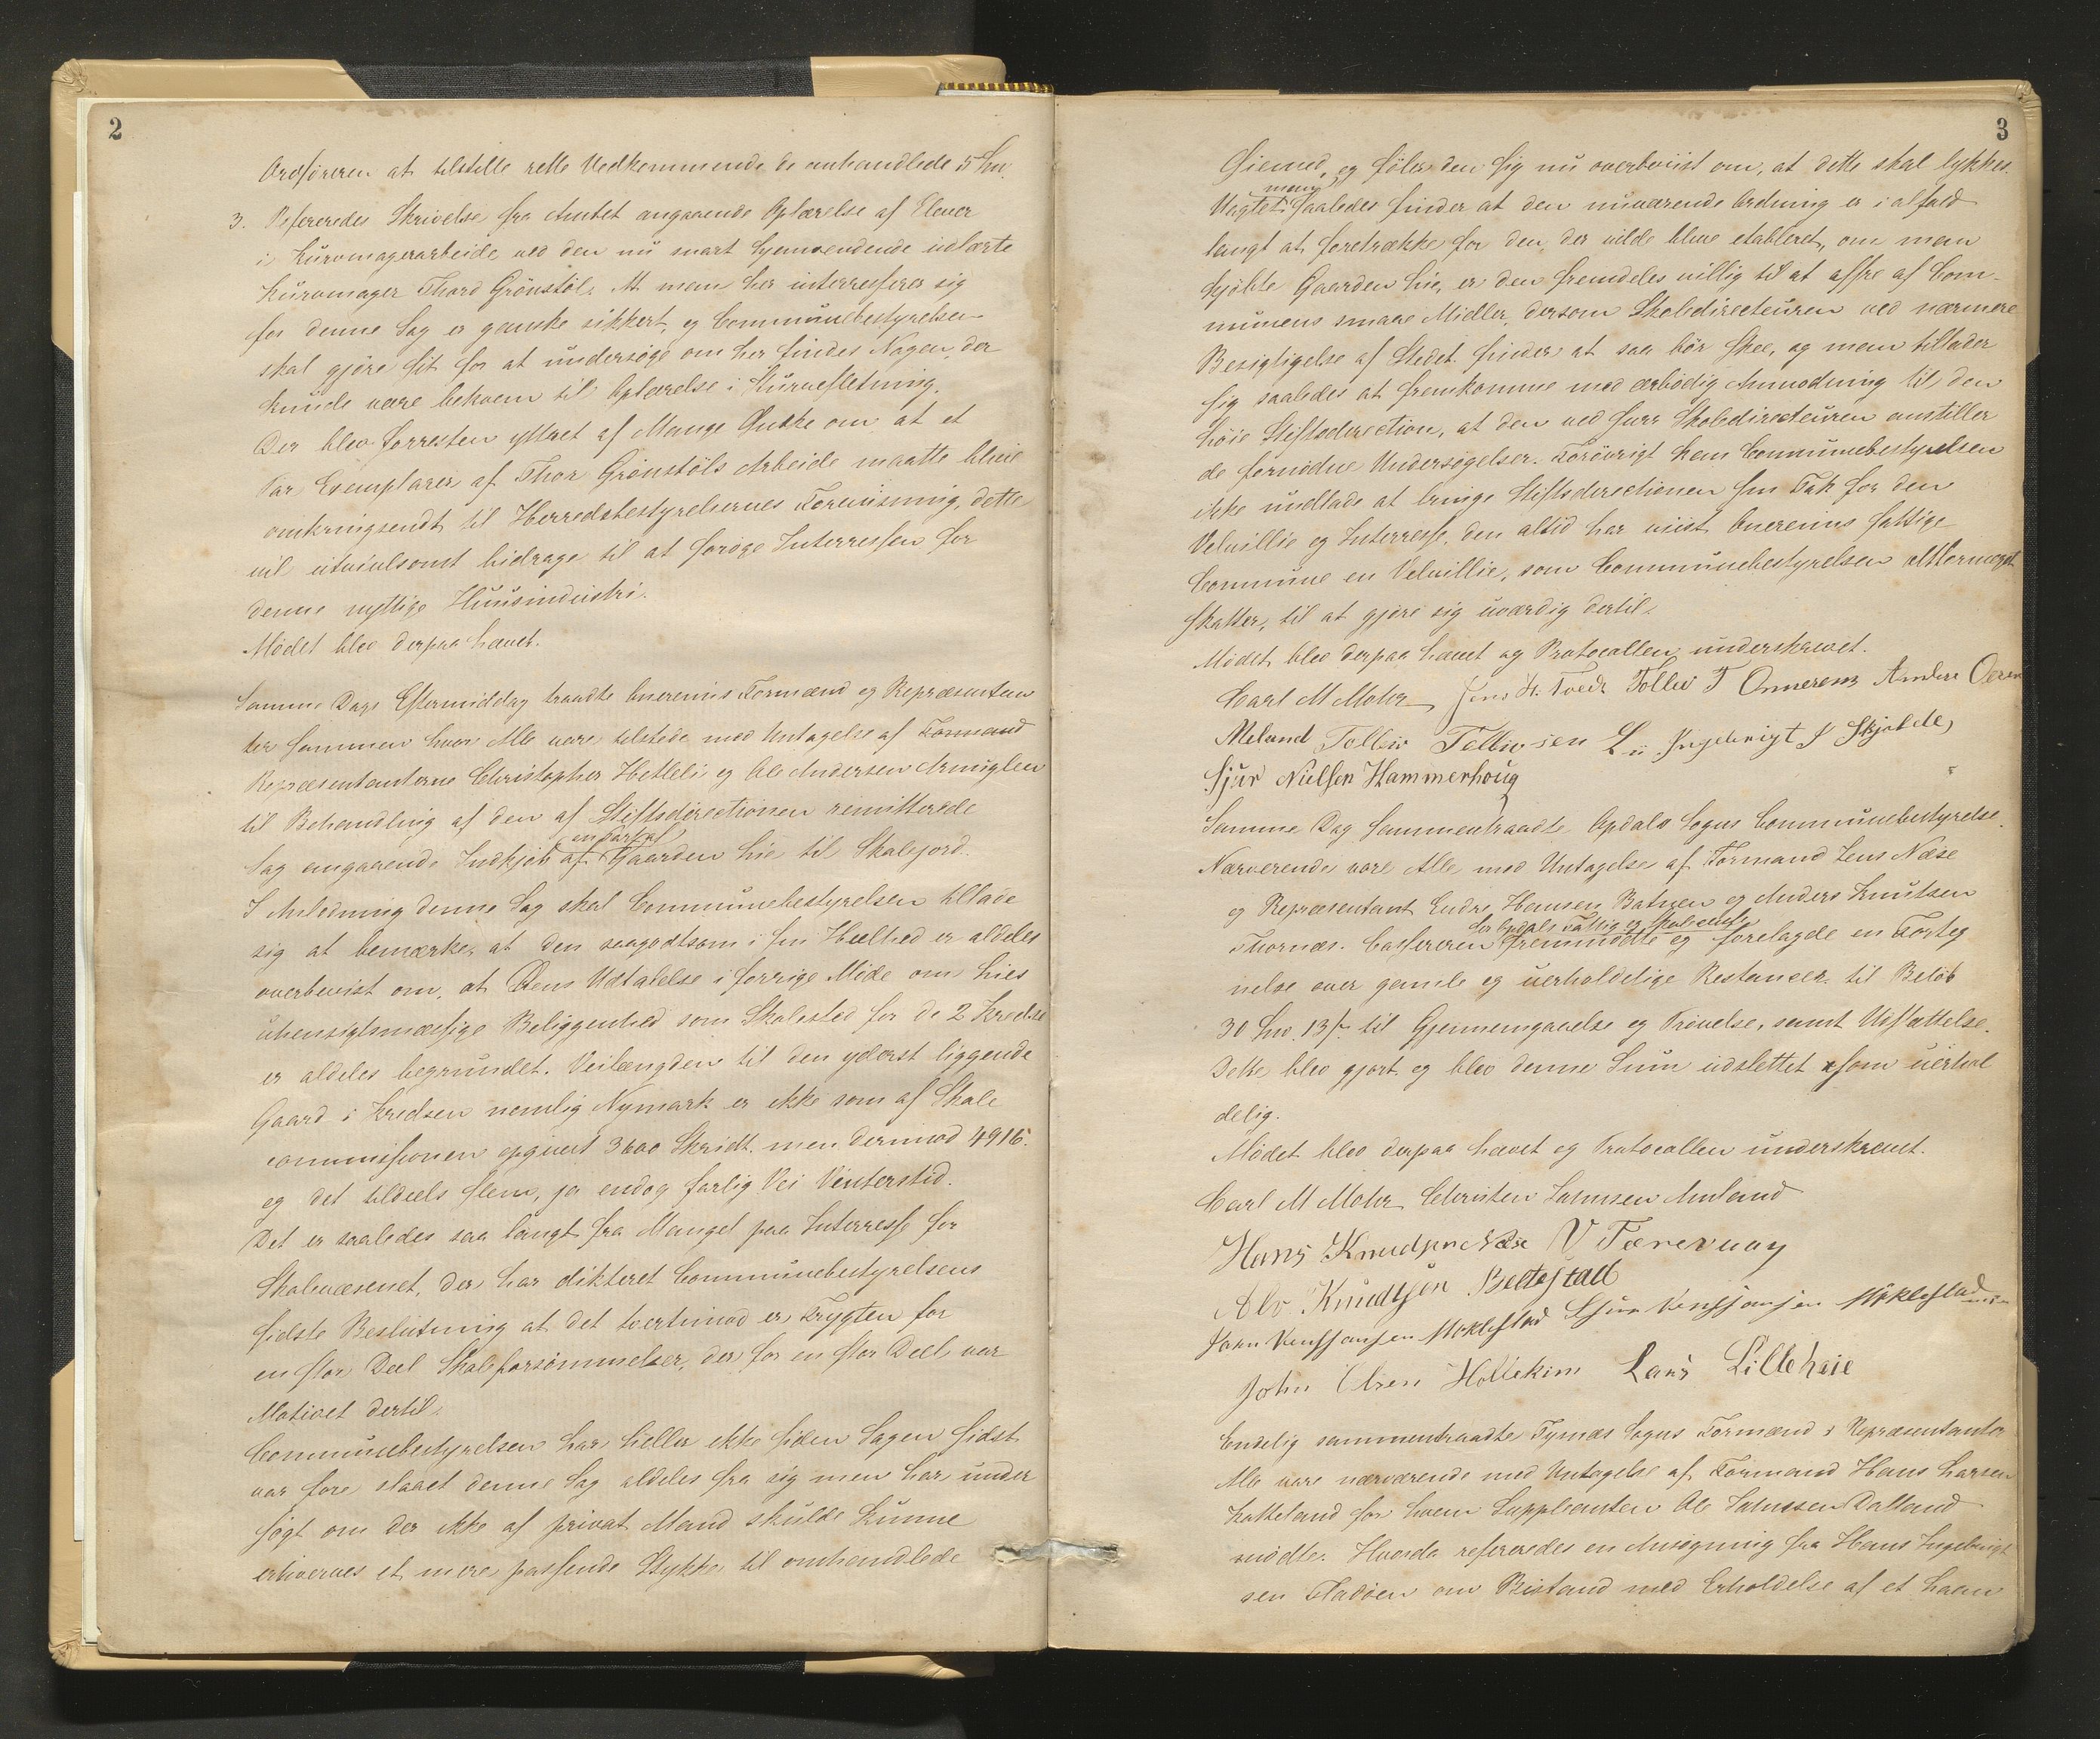 2
Ordføreren at tilstille rette Vedkommende de omhandlede 5 Spd.
3. Refereredes Skrivelse fra Amtet angaaende Oplærelse af Elever
i Kurvmagerarbeide ved den nu snart hjemvendende udlærte
Kurvmager Thord Grönstöl. At man her interresserer sig
for denne Sag er ganske sikkert, og Communebestyrelsen
skal gjøre sit for at undersøge om her findes Nogen, der
kunde være bekvem til Oplærelse i Kurvefletning.
Der blev forresten yttret af Mange Ønske om at et
Par Exemplarer af Thor Grönstöls Arbeide maatte blive
omkringsendt til Herredsbestyrelsernes Forevisning, dette
vil utvivlsomt bidrage til at forøge Interressen for
denne nyttige Huusindustri.
Mødet blev derpaa hævet.
Samme Dags Eftermiddag traadte Onereims Formænd og Repræsentan
ter sammen hvor Alle vare tilstede med Untagelse af Formand
Repræsentanterne Christopher Hetlelie og Ole Andersen
til Behandling af den af Stiftsdirectionen remitterede
en Part af
Sag angaaende Indkjöb af Gaarden Lie til Skolejord.
I Anledning denne Sag skal Communebestyrelsen tillade
sig at bemærke, at den saagodtsom i sin Heelhed er aldeles
overbevist om, at Dens Udtalelse i forrige Møde om Lies
uhensigtsmæssige Beliggenhed som Skolested for de 2 Kredse
er aldeles begrundet. Veilængden til den yderst liggende
Gaard i Kredsen nemlig Nymark er ikke som af Skole
commissionen opgivet 3600 Skridt, men derimod 4916.
og det tildeels slem, ja endog farlig Vei Vinterstid.
Det er saaledes saa langt fra Mangel paa Interresse for
Skolevæsenet, der har dikteret Communebestyrelsens
sidste Beslutning at det tvertimod er Frygten for
en stor Deel Skoleforsömmelser, der for en stor Deel var
Motivet dertil.
Communebestyrelsen har heller ikke siden Sagen sidst
var fore slaaet denne Sag aldeles fra sig men har under
søgt om der ikke af privat Mand skulde kunne
erhverves et mere passende Stykke til omhandlede
3
Øiemed, og föler den sig nu overbeviist om, at dette skal lykkes.
man
Uagtet saaledes finder at den nuværende Ordning er i alfald
langt at foretrække for den, der vilde blive etableret, om man
kjöbte Gaarden Lie, er den fremdeles villig til at offre af Com-
munens smaae Midler, dersom Skoledirecteuren ved nærmere
Besigtigelse af Stedet finder at saa bör skee, og man tillader
sig saaledes at fremkomme med ærbødig Anmodning til den
höie Stiftsdirection, at den ved Herr Skoledirecteuren anstiller
de fornödne Undersögelser. Foröwrigt kan Communebestyrelsen
ikke undlade at bringe Stiftsdirectionen sin Tak for den
Velvillie og Interresse, den altid har viist Onereims fattige
Commune en Velvillie, som Communebestyrelsen altformeget
skatter, til at gjöre sig uværdig dertil.
Mödet blev derpaa hævet og Protocollen underskrevet.
Carl M Mohr Jens H. Tvedt Tollev T Onnerem Anders
Meland Tollev Tollevsen Lii Ingebrigt J Skjelde,
Sjur Nielsen Hammerhoug
Samme Dag sammentraadte Opdals Sogns Communebestyrelse.
Nærværende vare Alle med Untagelse af Formand Jens Næse
og Repræsentant Endre Hansen Batnen og Anders Knutsen
for Opdals Fattig og Skolecasse
Thornæs. Cassereren fremmödte og forelagde en Forteg
nelse over gamle og uerholdelige Restancer til Belöb
30 Spd. 13 s. til Gjennemgaaelse og Prövelse, samt Udslettelse.
Dette blev gjort og blev denne Sum udslettet som uerhol
delig.
Mödet blev derpaa hævet og Protocollen underskrevet.
Carl M Mohr Christen Johnsen Amland
Hans Knudsen Næse V Tærevaag
Alv Knudtsen Beltestad
Møklestad Sjur Møklestad
John Olsen Hollekim Lars Lilleheie
Endelig sammentraadte Tysnæs Sogns Formænd & Repræsentanter
Alle vare nærværende med Untagelse af Formand Hans Larsen
Hatteland for hvem Suppleanten Ole Johnssen Dalland
mödte. Hvorda refereredes en Ansögning fra Hans Ingebrigt
sen Fladöen om Bistand med Erholdelse af et Laan